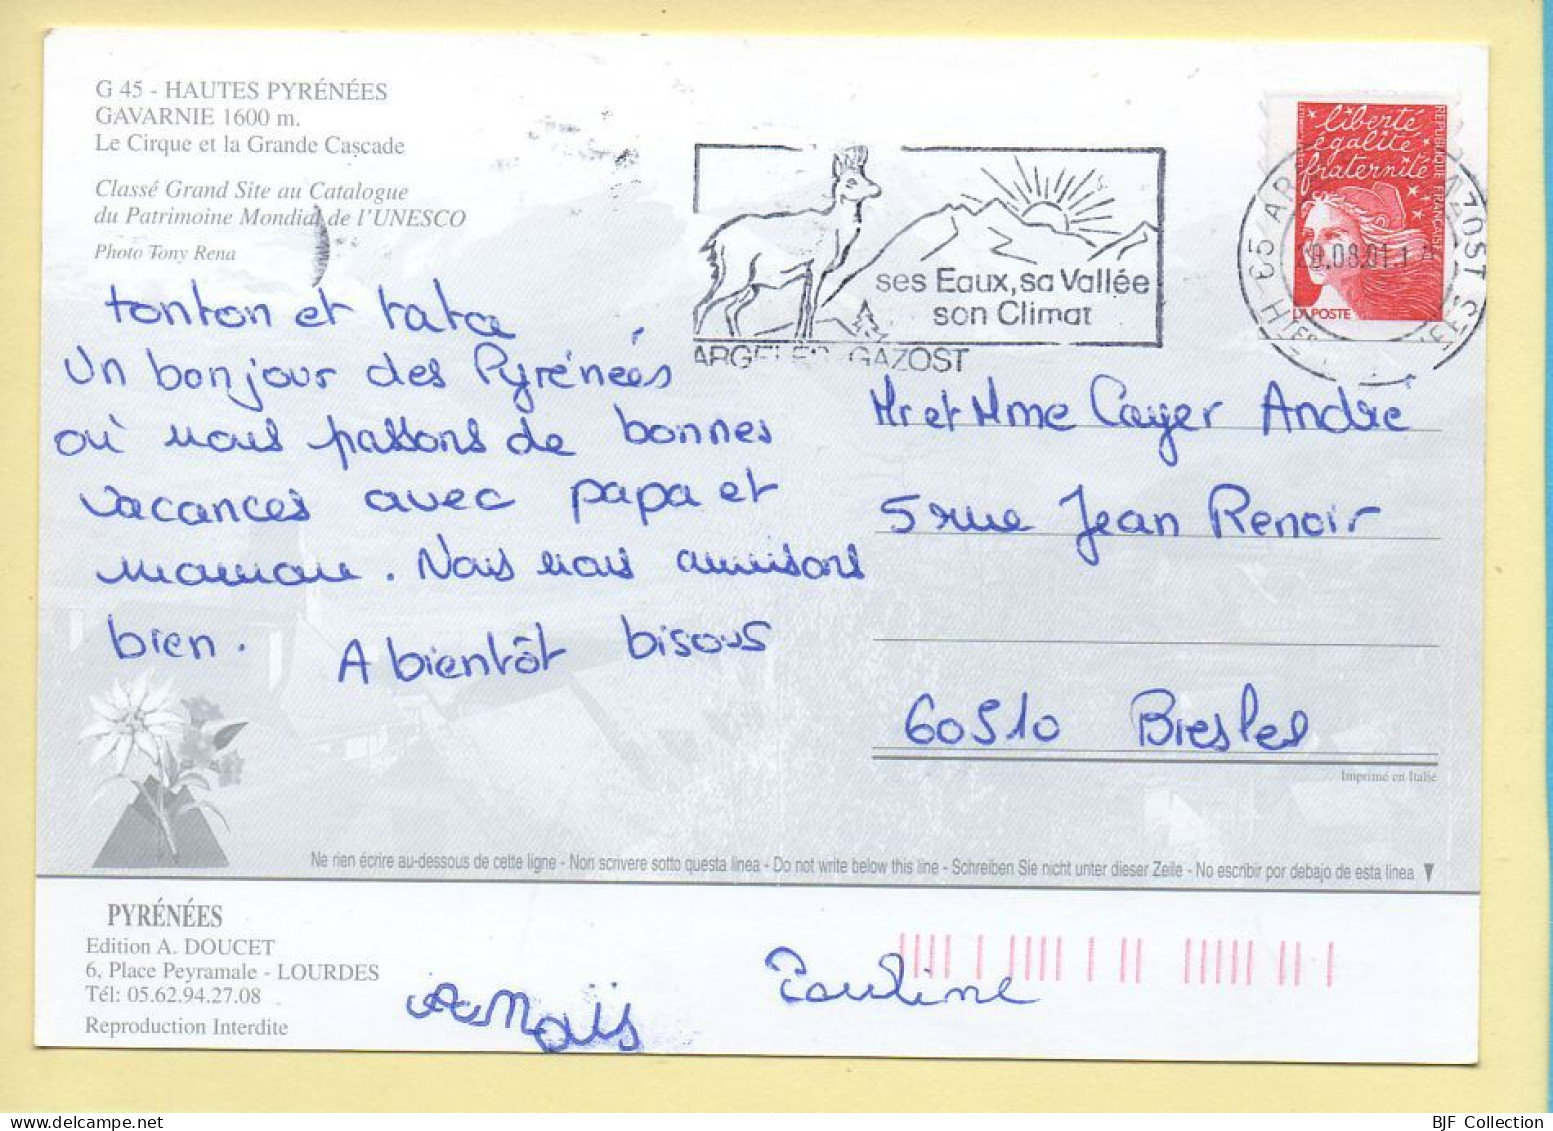 G 45 - HAUTES PYRÉNÉES
GAVARNIE 1600 m.
Le Cirque et la Grande Cascade
Classé Grand Site au Catalogue
du Patrimoine Mondial de l'UNESCO
Photo Tony Rena
ses Eaux, sa Vallée
son Climat
ARGELES GAZOST
liberté
égalité
fraternité
RÉPUBLIQUE FRANÇAISE
LA POSTE
tonton et tata
Un bonjour des Pyrénées
où nous passons de bonnes
vacances avec papa et
maman. Nous nous amusons
bien.
A bientôt bisous
Mr et Mme Cayer André
5 rue Jean Renoir
60510 Bresles
Imprimé en Italie
Ne rien écrire au-dessous de cette ligne - Non scrivere sotto questa linea - Do not write below this line - Schreiben Sie nicht unter dieser Zeile - No escribir por debajo de esta linea
PYRÉNÉES
Edition A. DOUCET
6, Place Peyramale - LOURDES
Tél: 05.62.94.27.08
Reproduction Interdite
Anaïs
Pauline
BJF Collection